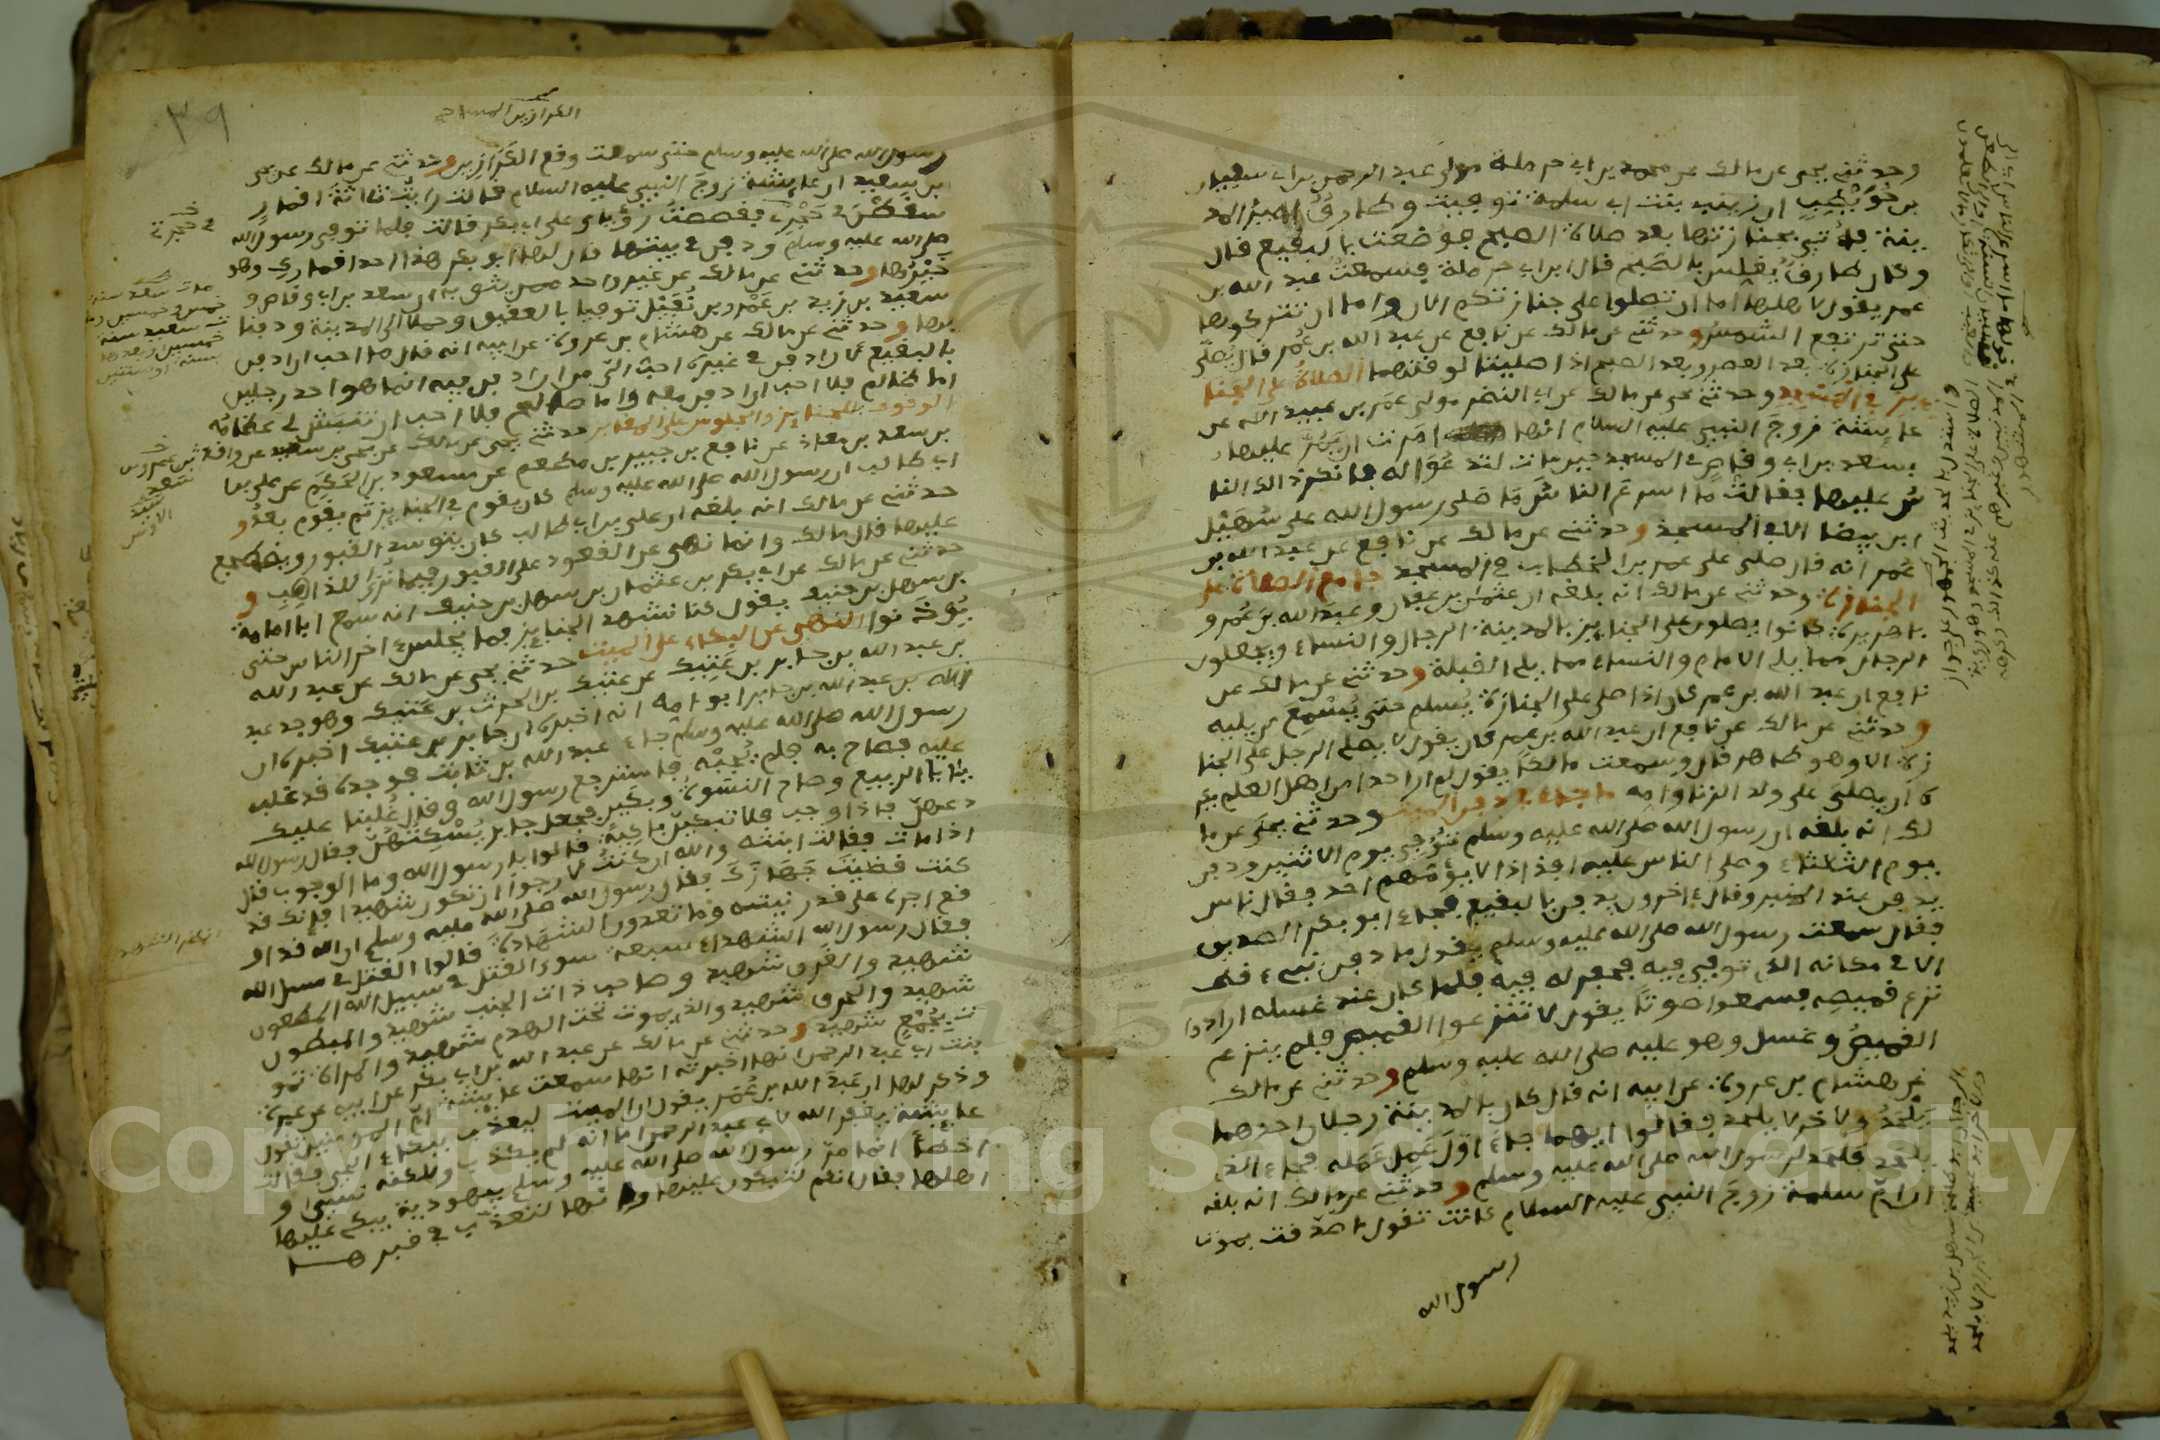 وحدثني يحيى عن مالك عن محمد بن ابي حرملة مولى عبد الرحمن بن ابي سفيان
بن حويطب ان زينب بنت ابي سلمة توفيت وطارق امير المد
ينة فاتي بجنازتها بعد صلاة الصبح فوضعت بالبقيع قال
وكان طارق يغلس بالصبح قال ابن ابي حرملة فسمعت عبد الله بن
عمر يقول لاهلها اما ان تصلوا على جنازتكم الان واما ان تتركوها
حتى ترتفع الشمس وحدثني عن مالك عن نافع عن عبد الله بن عمر قال يصلى
على الجنازة بعد العصر وبعد الصبح اذا صليتا لوقتهما الصلاة على الجنا
ئز في المسجد وحدثني يحيى عن مالك عن ابي النضر مولى عمر بن عبيد الله عن
عائشة زوج النبي عليه السلام انها امرت ان يمر عليها
بسعد بن ابي وقاص في المسجد حين مات لتدعو له فانكر ذلك النا
س عليها فقالت ما اسرع الناس ما صلى رسول الله على سهيل
ابن بيضا الا في المسجد وحدثني عن مالك عن نافع عن عبد الله بن
عمر انه قال صلى على عمر بن الخطاب في المسجد جامع الصلاة على
الجنازة وحدثني عن مالك انه بلغه ان عثمان بن عفان وعبد الله بن عمر و
باهريرة كانوا يصلون على الجنائز بالمدينة الرجال والنساء ويجعلون
الرجال مما يلي الامام والنساء مما يلي القبلة وحدثني عن مالك عن
نافع ان عبد الله بن عمر كان اذا صلى على الجنازة يسلم حتى يسمع من يليه
وحدثني عن مالك عن نافع ان عبد الله بن عمر كان يقول لا يصلي الرجل على الجنا
زة الا وهو طاهر قال وسمعت مالكا يقول لم ار احدا من اهل العلم يكر
ه ان يصلى على ولد الزنا وامه ما جاء في دفن الميت وحدثني يحيى عن ما
لك انه بلغه ان رسول الله صلى الله عليه وسلم توفي يوم الاثنين ودفن
يوم الثلثاء وصلى الناس عليه افذاذا لا يؤمهم احد فقال ناس
يدفن عند المنبر وقال ءاخرون يدفن بالبقيع فجاء ابو بكر الصديق
فقال سمعت رسول الله صلى الله عليه وسلم يقول ما دفن نبيء قط
الا في مكانه الذي توفي فيه فحفر له فيه فلما كان عند غسله ارادوا
نزع قميصه فسمعوا صوتا يقول لا تنزعوا القميص فلم ينزع
القميص وغسل وهو عليه صلى الله عليه وسلم وحدثني عن مالك
عن هشام بن عروة عن ابيه انه قال كان بالمدينة رجلان احدهما
يلحد والاخر لا يلحد فقالوا ايهما جاء اول عمل عمله فجاء الذي
يلحد فلحد لرسول الله صلى الله عليه وسلم وحدثني عن مالك انه بلغه
ان ام سلمة زوج النبي عليه السلام كانت تقول ما صدقت بموت
رسول الله
٣٩
رسول الله صلى الله عليه وسلم حتى سمعت وقع الكرازين وحدثني عن مالك عن يحيى
بن سعيد ان عائشة زوج النبي عليه السلام قالت رايت ثلاثة اقمار
سقطن في حجري فقصصت رؤياي على ابي بكر قالت فلما توفي رسول الله
صلى الله عليه وسلم ودفن في بيتها قال لها ابو بكر هذا احد اقمارك وهو
خيرها وحدثني عن مالك عن غير واحد ممن يثق به ان سعد بن ابي وقاص و
سعيد بن زيد بن عمرو بن نفيل توفيا بالعقيق وحملا الى المدينة ودفنا
بها وحدثني عن مالك عن هشام بن عروة عن ابيه انه قال ما احب ان ادفن
بالبقيع لان ادفن في غيره احب الي من ان ادفن فيه انما هو احد رجلين
اما ظالم فلا احب ان ادفن معه واما صالح فلا احب ان تنبش لي عظامه
الوقوف للجنايز والجلوس على المقابر حدثني يحيى عن مالك عن يحيى بن سعيد عن واقد
بن سعد بن معاذ عن نافع بن جبير بن مطعم عن مسعود بن الحكم عن علي بن
ابي طالب ان رسول الله صلى الله عليه وسلم كان يقوم في الجنايز ثم يقوم بعد و
حدثني عن مالك انه بلغه ان علي بن ابي طالب كان يتوسد القبور ويضطجع
عليها قال مالك وانما نهي عن القعود على القبور فيما نرى للذاهب و
حدثني عن مالك عن ابي بكر بن عثمان بن سهل بن حنيف انه سمع ابا امامة
بن سهل بن حنيف يقول كنا نشهد الجنايز فما يجلس ءاخر الناس حتى
يوذنوا النهي عن البكاء على الميت حدثني يحيى عن مالك عن عبد الله
بن عبد الله بن جابر بن عتيك عن عتيك بن الحرث بن عتيك وهو جد عبد
الله بن عبد الله بن جابر ابو امه انه اخبره ان جابر بن عتيك اخبره ان
رسول الله صلى الله عليه وسلم جاء عبد الله بن ثابت فوجده قد غلب
عليه فصاح به فلم يجبه فاسترجع رسول الله وقال غلبنا عليك
يا ابا الربيع وصاح النسوة وبكين فجعل جابر يسكتهن فقال رسول الله
دعهن فاذا وجب فلا تبكين باكية قالوا يا رسول الله وما الوجوب قال
اذا مات فقالت ابنته والله ان كنت لارجوا ان تكون شهيدا فانك قد
كنت قضيت جهازك فقال رسول الله صلى الله عليه وسلم ان الله قد او
قع اجره على قدر نيته وما تعدون الشهادة قالوا القتل في سبيل الله
فقال رسول الله الشهداء سبعة سوى القتل في سبيل الله المطعون
شهيد والغرق شهيد وصاحب ذات الجنب شهيد والمبطون
شهيد والحرق شهيد والذي يموت تحت الهدم شهيد والمراة تمو
ت بجمع شهيد وحدثني عن مالك عن عبد الله بن ابي بكر عن ابيه عن عمرة
بنت عبد الرحمن انها اخبرته انها سمعت عائشة ام المومنين تقول
وذكر لها ان عبد الله بن عمر يقول ان الميت ليعذب ببكاء الحي فقالت
عائشة يغفر الله لابي عبد الرحمن اما انه لم يكذب ولكنه نسي او
اخطا انما مر رسول الله صلى الله عليه وسلم بيهودية يبكي عليها
اهلها فقال انكم لتبكون عليها وانها لتعذب في قبرها
Copyright © King Saud University
1957